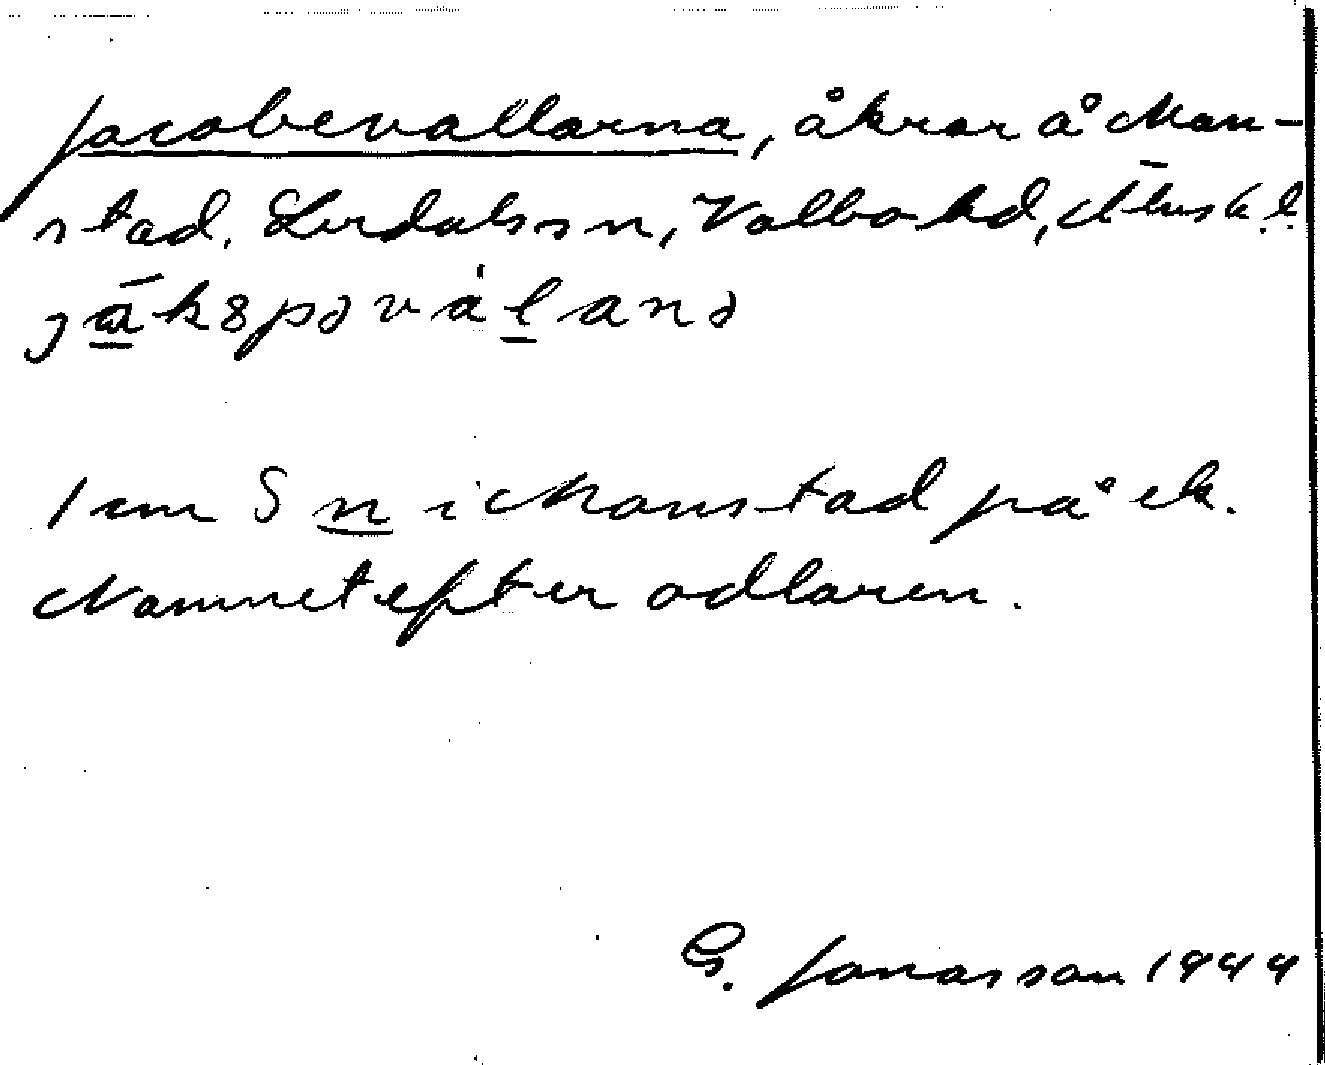 Jacobevallarna, åkrar å Mon-
stad, Lerdals sn, Valbo hd, Älvsb. l.
jäk8pəvàlanə
1 cm S n i Monstad på ek.
Namnet efter odlaren.
G. Jonasson 1944